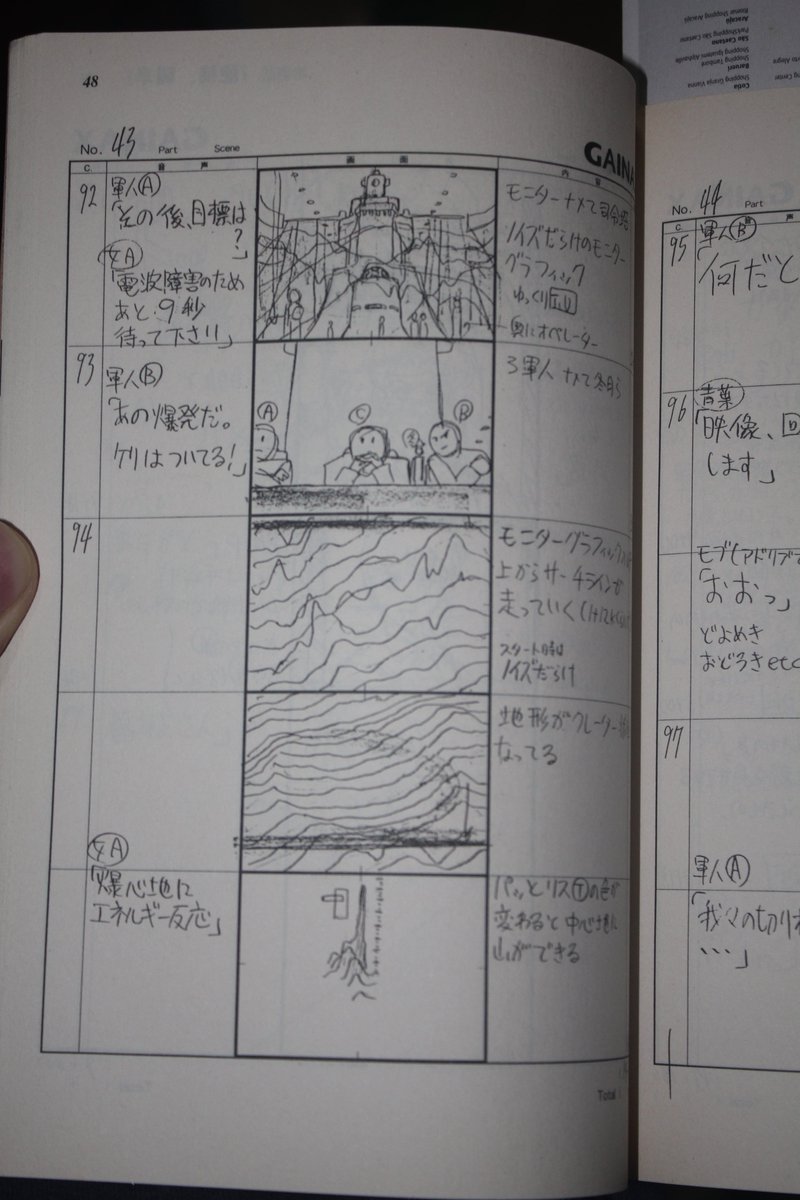 48
No. 43 Part Scene
GAINA
C. 音声 画面 内容
92
軍人Ⓐ
「その後、目標は
?」
オA
「電波障害のため
あと.9秒
待って下さい」
モニターナメて司令塔
ノイズだらけのモニター
グラフィック
ゆっくり T.U
奥にオペレーター
93
軍人Ⓑ
「あの爆発だ。
ケリはついてる!」
Ⓐ
Ⓒ
Ⓑ
3軍人ナメて冬月ら
94
モニターグラフィック
上からサーチラインが
走っていく
スタート時は
ノイズだらけ
地形がクレーター
なってる
オA
「爆心地に
エネルギー反応」
パッとリスⓉの色が
変わると中心地に
山ができる
Total
No. 44 Part
C. 音声
95
軍人Ⓑ
「何だと
96
青葉
「映像、回
します」
モブ(アドリブで
「おおっ」
どよめき
おどろきetc
97
軍人Ⓐ
「我々の切り札
…」
Cotia
Shopping Granja Vianna
Barueri
Shopping Iguatemi Alphaville
Shopping Tamboré
São Caetano
ParkShopping São Caetano
Aracaju
Riomar Shopping Aracaju